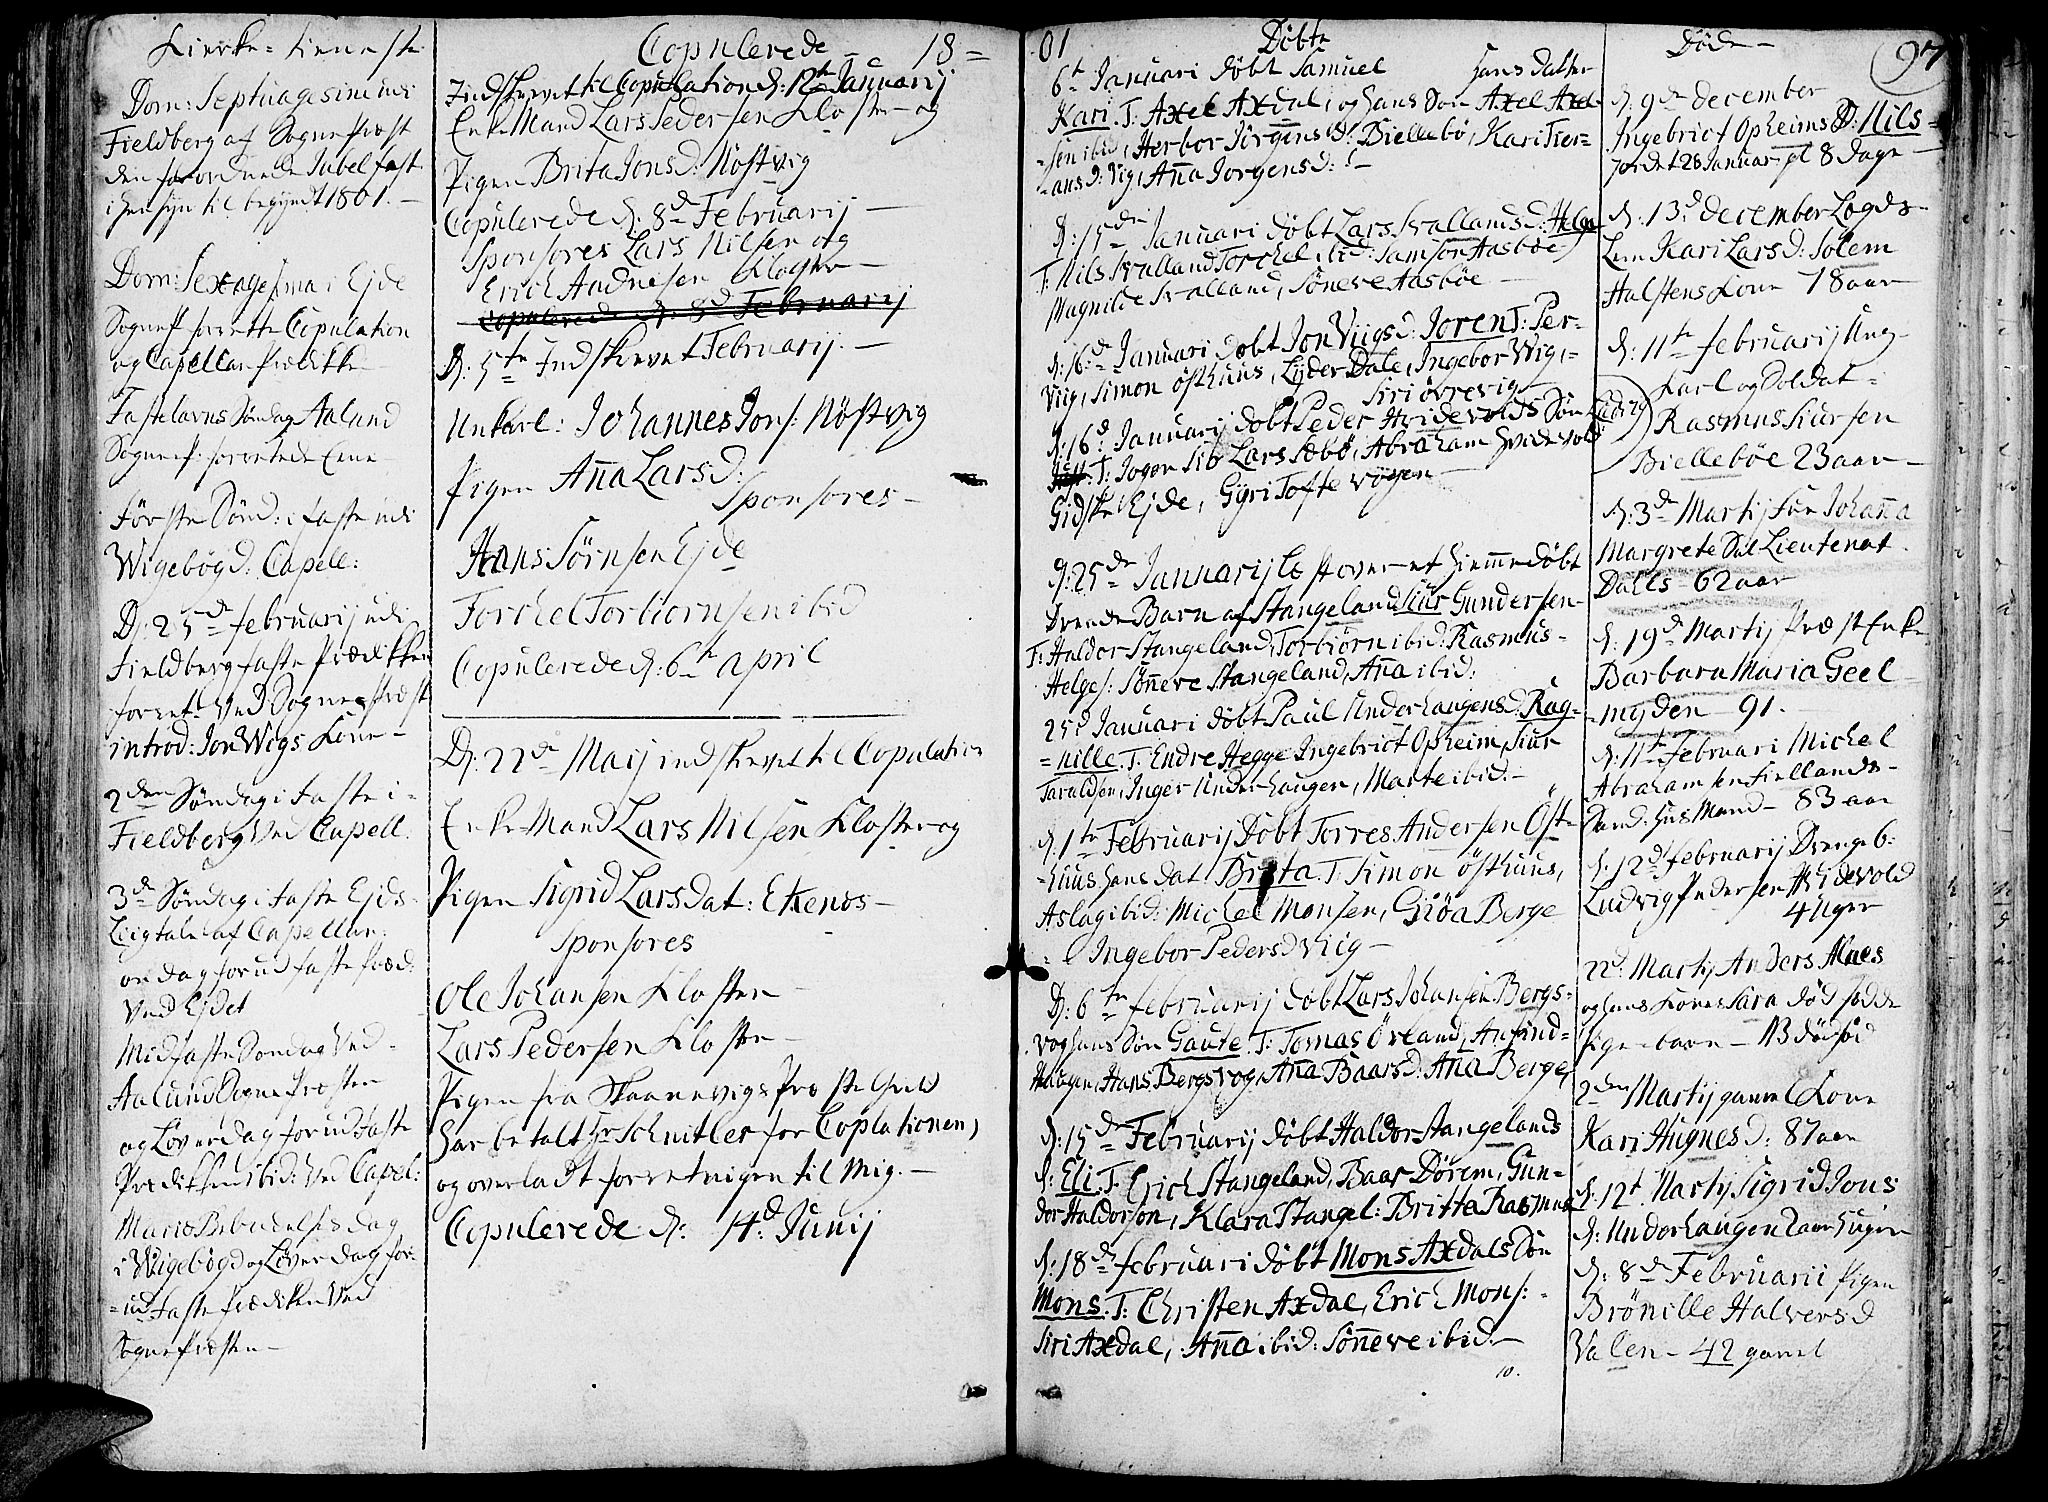 Kirke-tieneste
Dom: Septuagesim: udi
Fieldberg af Sognepræst
den forordnede Jubelfest
i hensyn til begyndt 1801. -
Dom: Sexagesima i Ejde
Sognep. forrette Copulation
og Capellan Prædikke
Fastelavns Søndag Aalund
Sognep: forrettede
Første Sønd: i faste udi
Wigebøgd: Capell:
D: 25de februarij udi
Fieldberg faste Prædikken
forret: ved Sognepræst
introd: Jon Wigs Kone -
2den Søndag i faste i
Fieldberg ved Capell.
3de Søndag i faste Ejds-
af Capellan:
on dag forud faste præd:
ved Ejdet
Midfaste Søndag ved
Aalund Sognepræsten
og Løverdag forud faste
Prædikken ibid: ved Capel:
Mariæ Bebudelses dag
i Wigebøgd og Løverdag for-
ud faste prædiken ved
Sognepræsten -
Copulerede 18-
Indskrevet til Copulation d: 12te Januarij
Enke Mand Lars Pedersen Kloster og
Pigen Brita Jonsd: Nøstvig
Copulerede d: 8de Februarij -
Sponsores Lars Nilsen og
Erich Andresen Kloster -
Copulerede d: 8de Februarij
D: 5te Indskrevet Februarij. -
Unkarl: Johannes Jons: Nøstvig
Pigen Aña Larsd:
Sponsores -
Hans Sørnsen Ejde
Torchel Torbiornsen ibid
Copulerede d: 6te april
D: 22de Maij indskrevet til Copulation
Enke Mand Lars Nilsen Kloster og
Pigen Sigrid Larsdat: Ekenøs -
sponsores
Ole Johansen Kloster -
Lars Pedersen Kloster -
Pigen fra Skaanevigs Præstegield
har betalt Hr Schnitler for Coplationen,
og overladt forretnigen til Mig. -
Copulerede d: 14de Junij
01 Døbte
6te Januari døbt Samuel hans datter
Kari. T: Axel Axdal, og hans Søn Axel Axel-
sen ibid, Herbor Jørgensd: Biellebø, Kari Tier-
ansd: Vig, Aña Jorgensd: -
D: 15de Januari døbt Lars Svallands d: Helge
T: Nils Svalland Torchel ibid: Samson Aasbøe
Magnilde Svalland, Sønneve Aasbøe -
d: 16de Januari døbt Jon Viigs d. Joren T: Per-
Viig, Simon östhuus, Lyder Dale, Ingebor Wig,
Siri øvrevig -
d: 16d: Januarij døbt Peder Hvidevolds Søn Ludvig
T: Joger Lars Sæbø, Abraham Hvidevold
Gidske Ejde, Gyri Toftevogen -
d: 25de Januarij læst over et hiemmedøbt
Drenge Barn af Stangeland Siur Gundersen
F: Haldor Stangeland, Torbiørn ibid: Rasmus
Helges: Sønneve Stangeland, Aña ibid:
25d Januari døbt Paul Underhaugens d: Rag-
nille. T: Endre Hegge Ingebrict Opheim, Siur
Taraldsen, Inger Underhaugen, Marte ibid: -
d: 1te Februarij Døbt Torres Andersen Öst-
huus hans dat: Brita T: Simon östhuus,
Aslag ibid: Michel Monsen, Giöa Berge
Ingebor Pedersd Viig -
D: 6te februarij døbt Lars Johansen Bergs-
vog hans Søn Gaute. T: Tomas Örland, Anfind
Haugen, Hans Bergsvog, Aña Baarsd: Aña Berge,
d: 15de Februarij døbt Haldor Stangelands
d: Eli. T: Erich Stangeland, Baar Dörem, Gun-
der Haldorson, Klara Stangel: Britta Rasmus
d: 18de februari døbt Mons Axdals Søn
Mons. T: Christen Axdal, Erich Mons: -
Siri Axdal, Aña ibid: Sønneve ibid. -
10.
Døde - 97
d: 9de december
Ingebrict Opheims d: Nils-
jordet 28 Januar gl 8 dage
d: 13de december Logds-
Lem Kari Larsd: Solem
Halstens Kone 78 aar
d: 11te februarij Ung-
karl og Soldat -
Rasmus Siursen
Biellebøe 23 aar -
d: 3de Martij Frue Johaña
Margrete Sal Lieutenat
Dalls - 62 aar
d: 19de Martij Præst Enke
Barbara Maria Geel-
-myden 91. -
d: 11te Februari Michel
Abrahamsen Fiellands-
Husmand - 83 aar
d: 12d februarij Drengeb:
Ludvig Pedersen Hvidevold
4 Uger
22d: Martij Anders Alnes
og hans Kones Sara død fødde
Pige-barn - NB dødfød
2den Martij gamel Kone
Kari Hugnesd: 87 aar
d: 12t Martij Sigrid Jons
d: Underhaugen
d: 8de Februarii Pigen
Brönille Halversd
Valen - 42 gamel